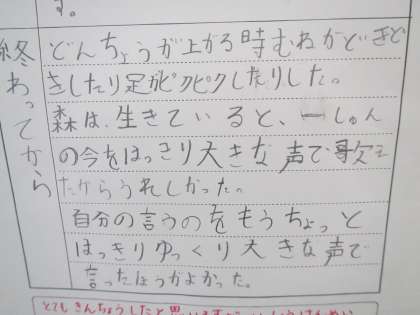 す。
終わってから
どんちょうが上がる時むねがどきど
きしたり足がピクピクしたりした。
森は、生きている と、一しゅん
の今をはっきり大きな声で歌え
たからうれしかった。
自分の言うのをもうちょっと
はっきりゆっくり大きな声で
言ったほうがよかった。
とてもきんちょうしたと思